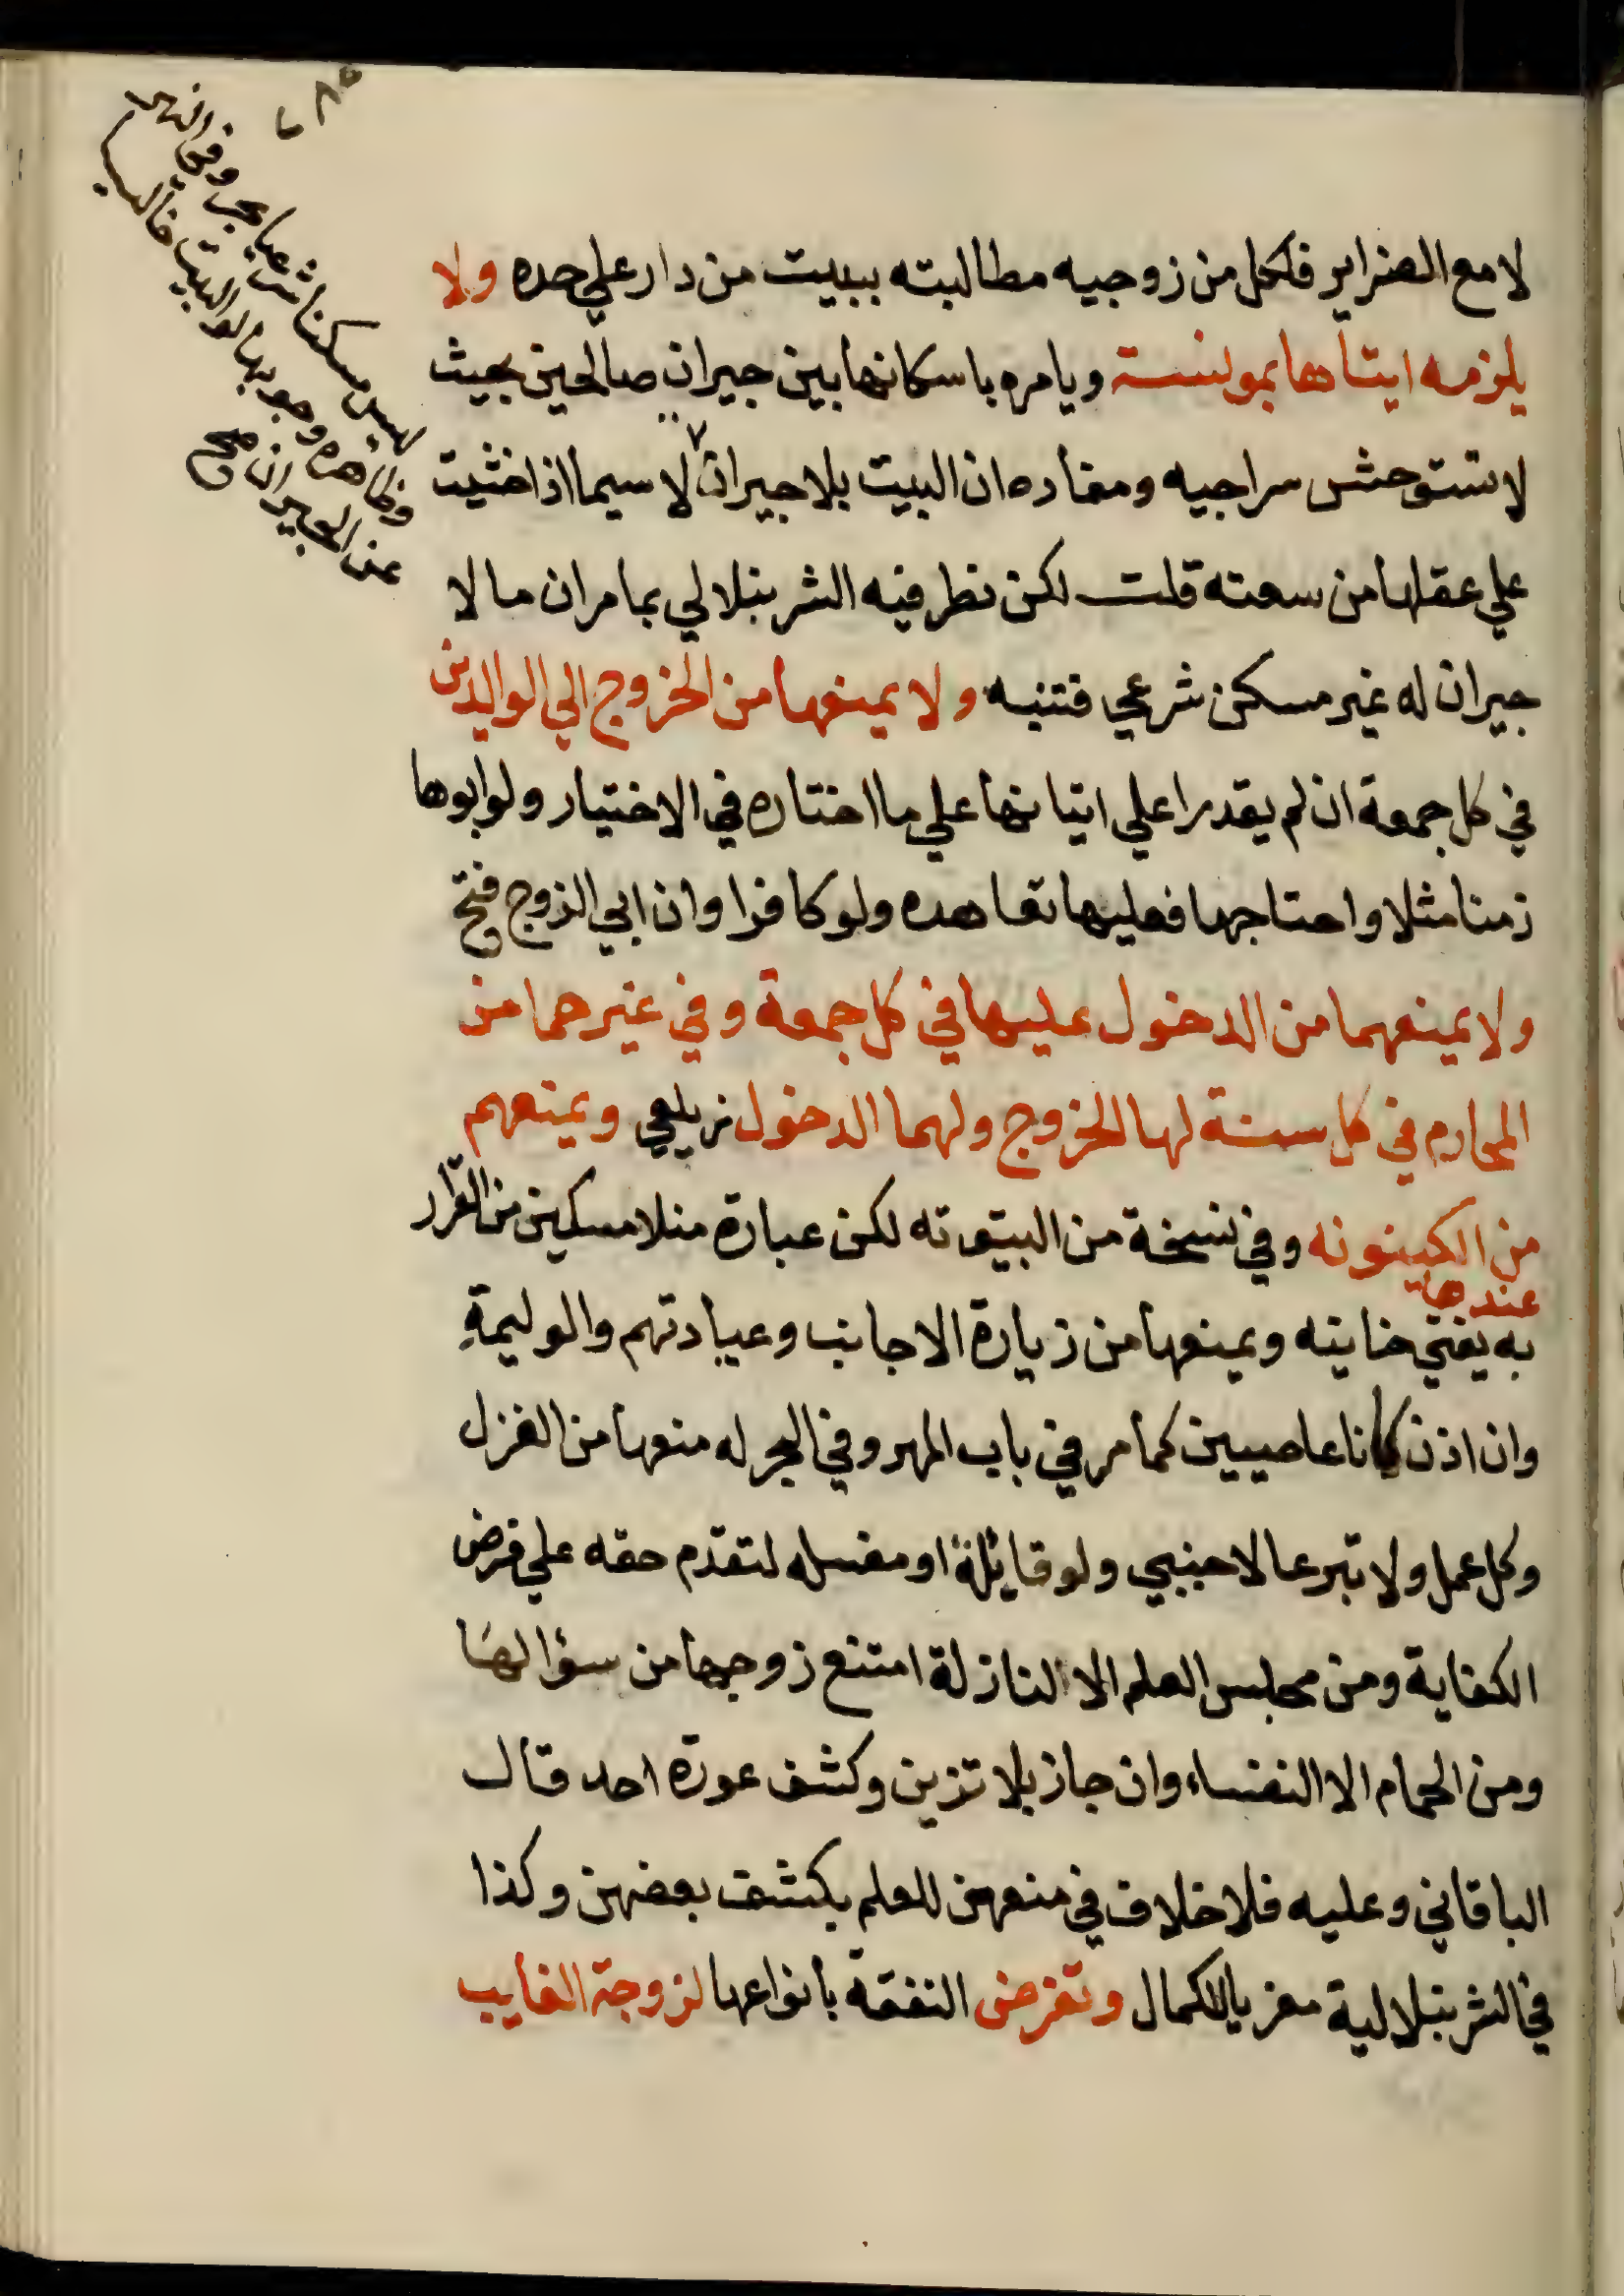 ٢٨٥
لا مع الضراير فلكل من زوجيه مطالبته ببيت من دار علي حده ولا
يلزمه ايتاها بمونسة ويامره باسكانها بين جيران صالحين بحيث
لا تستوحش سراجيه ومفاده ان البيت بلا جيران لا سيما اذا خشيت
علي عقلها من سعته قلت لكن نظر فيه الشرنبلالي بما مر ان ما لا
جيران له غير مسكن شرعي فتنبه ولا يمنعها من الخروج الي الوالدين
في كل جمعة ان لم يقدرا علي اتيانها علي ما اختاره في الاختيار ولو ابوها
زمنا مثلا واحتاجها فعليها تعاهده ولو كافرا وان ابي الزوج فتح
ولا يمنعهما من الدخول عليها في كل جمعة وفي غيرهما من
المحارم في كل سنة لها الخروج ولهما الدخول زيلعي ويمنعهم
من الكينونه وفي نسخة من البيتوته لكن عبارة منلا مسكين من القرار
عندها
به يفتي خانيه ويمنعها من زيارة الاجانب وعيادتهم والوليمة
وان اذن كانا عاصيين كما مر في باب المهر وفي البحر له منعها من الغزل
وكل عمل ولا تبرعا لاجنبي ولو قابلة او مغسله لتقدم حقه علي فرض
الكفاية ومن مجلس العلم الا لنازلة امتنع زوجها من سؤالها
ومن الحمام الا النفساء وان جاز بلا تزين وكشف عورة احد قال
الباقاني وعليه فلا خلاف في منعهن للعلم بكشف بعضهن وكذا
في الشرنبلالية معزيا للكمال وتفرض النفقة بانواعها لزوجة الغايب
ليس مسكنا شرعيا بحر وفي النهر
وظاهره وجوبها لو البيت خاليا
عن الجيران صح